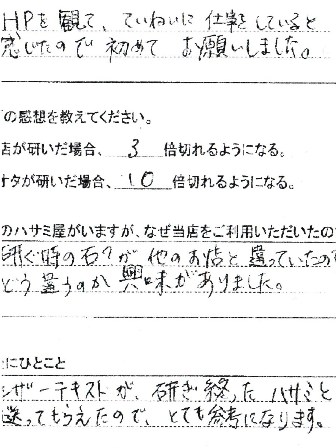 HPを観て、ていねいに仕事をしていると
感じたので初めてお願いしました。
の感想を教えてください。
店が研いだ場合、3倍切れるようになる。
ナタが研いだ場合、10倍切れるようになる。
のハサミ屋がいますが、なぜ当店をご利用いただいたの
研ぐ時の石?が他のお店と違っていたので
どう違うのか興味がありました。
にひとこと
シザーテキストが、研ぎ終ったハサミと
送ってもらえたので、とても参考になります。